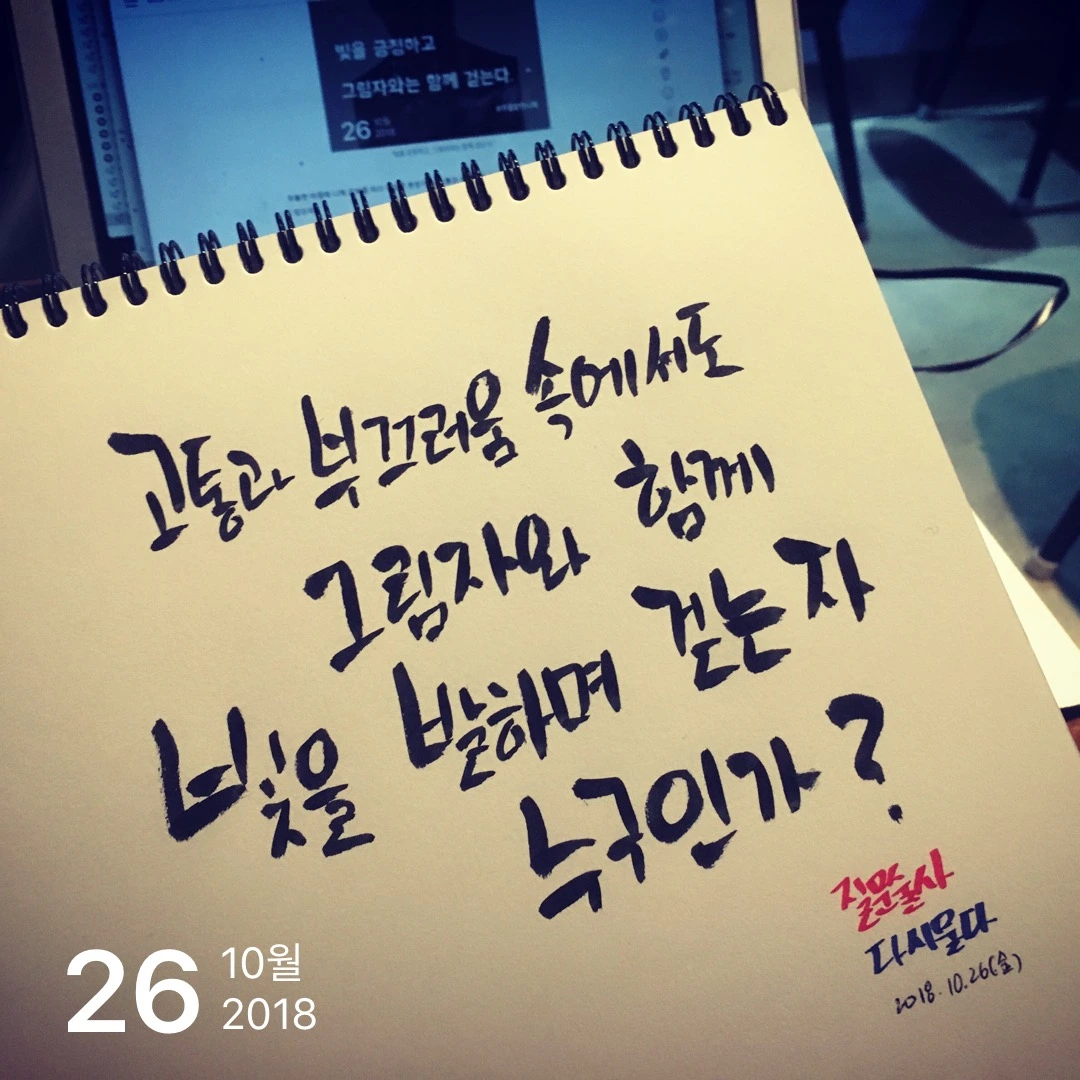 빛을 긍정하고
그림자와는 함께 걷는다.
26 10월
2018
고통과 부끄러움 속에서도
그림자와 함께
빛을 발하며 걷는 자
누구인가?
질문술사
다시울다
2018.10.26(金)
26 10월
2018